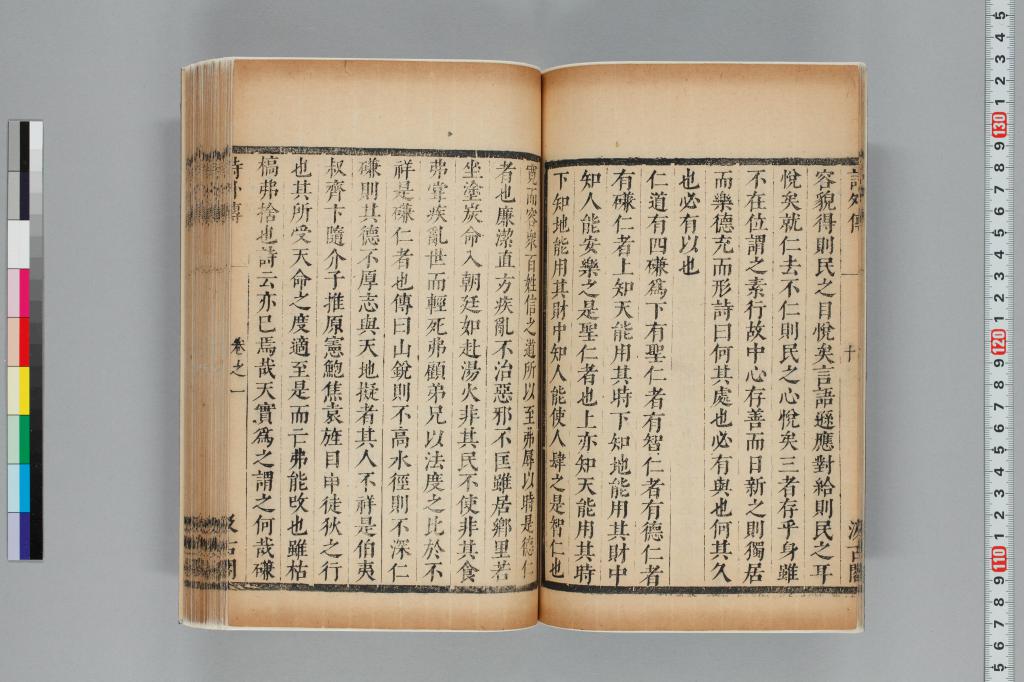 詩外傳 一 十 汲古閣
容貌得則民之目悅矣言語遜應對給則民之耳
悅矣就仁去不仁則民之心悅矣三者存乎身雖
不在位謂之素行故中心存善而日新之則獨居
而樂德充而形詩曰何其處也必有與也何其久
也必有以也
仁道有四磏爲下有聖仁者有智仁者有德仁者
有磏仁者上知天能用其時下知地能用其財中
知人能安樂之是聖仁者也上亦知天能用其時
下知地能用其財中知人能使人肆之是智仁也
寬而容衆百姓信之道所以至弗辱以時是德仁
者也廉潔直方疾亂不治惡邪不匡雖居鄉里若
坐塗炭命入朝廷如赴湯火非其民不使非其食
弗嘗疾亂世而輕死弗顧弟兄以法度之比於不
祥是磏仁者也傳曰山銳則不高水徑則不深仁
磏則其德不厚志與天地擬者其人不祥是伯夷
叔齊卞隨介子推原憲鮑焦袁旌目申徒狄之行
也其所受天命之度適至是而亡弗能改也雖枯
槁弗捨也詩云亦已焉哉天實爲之謂之何哉磏
詩外傳 卷之一 汲古閣
5 4 3 2 1 130 9 8 7 6 5 4 3 2 1 120 9 8 7 6 5 4 3 2 1 110 9 8 7 6 5